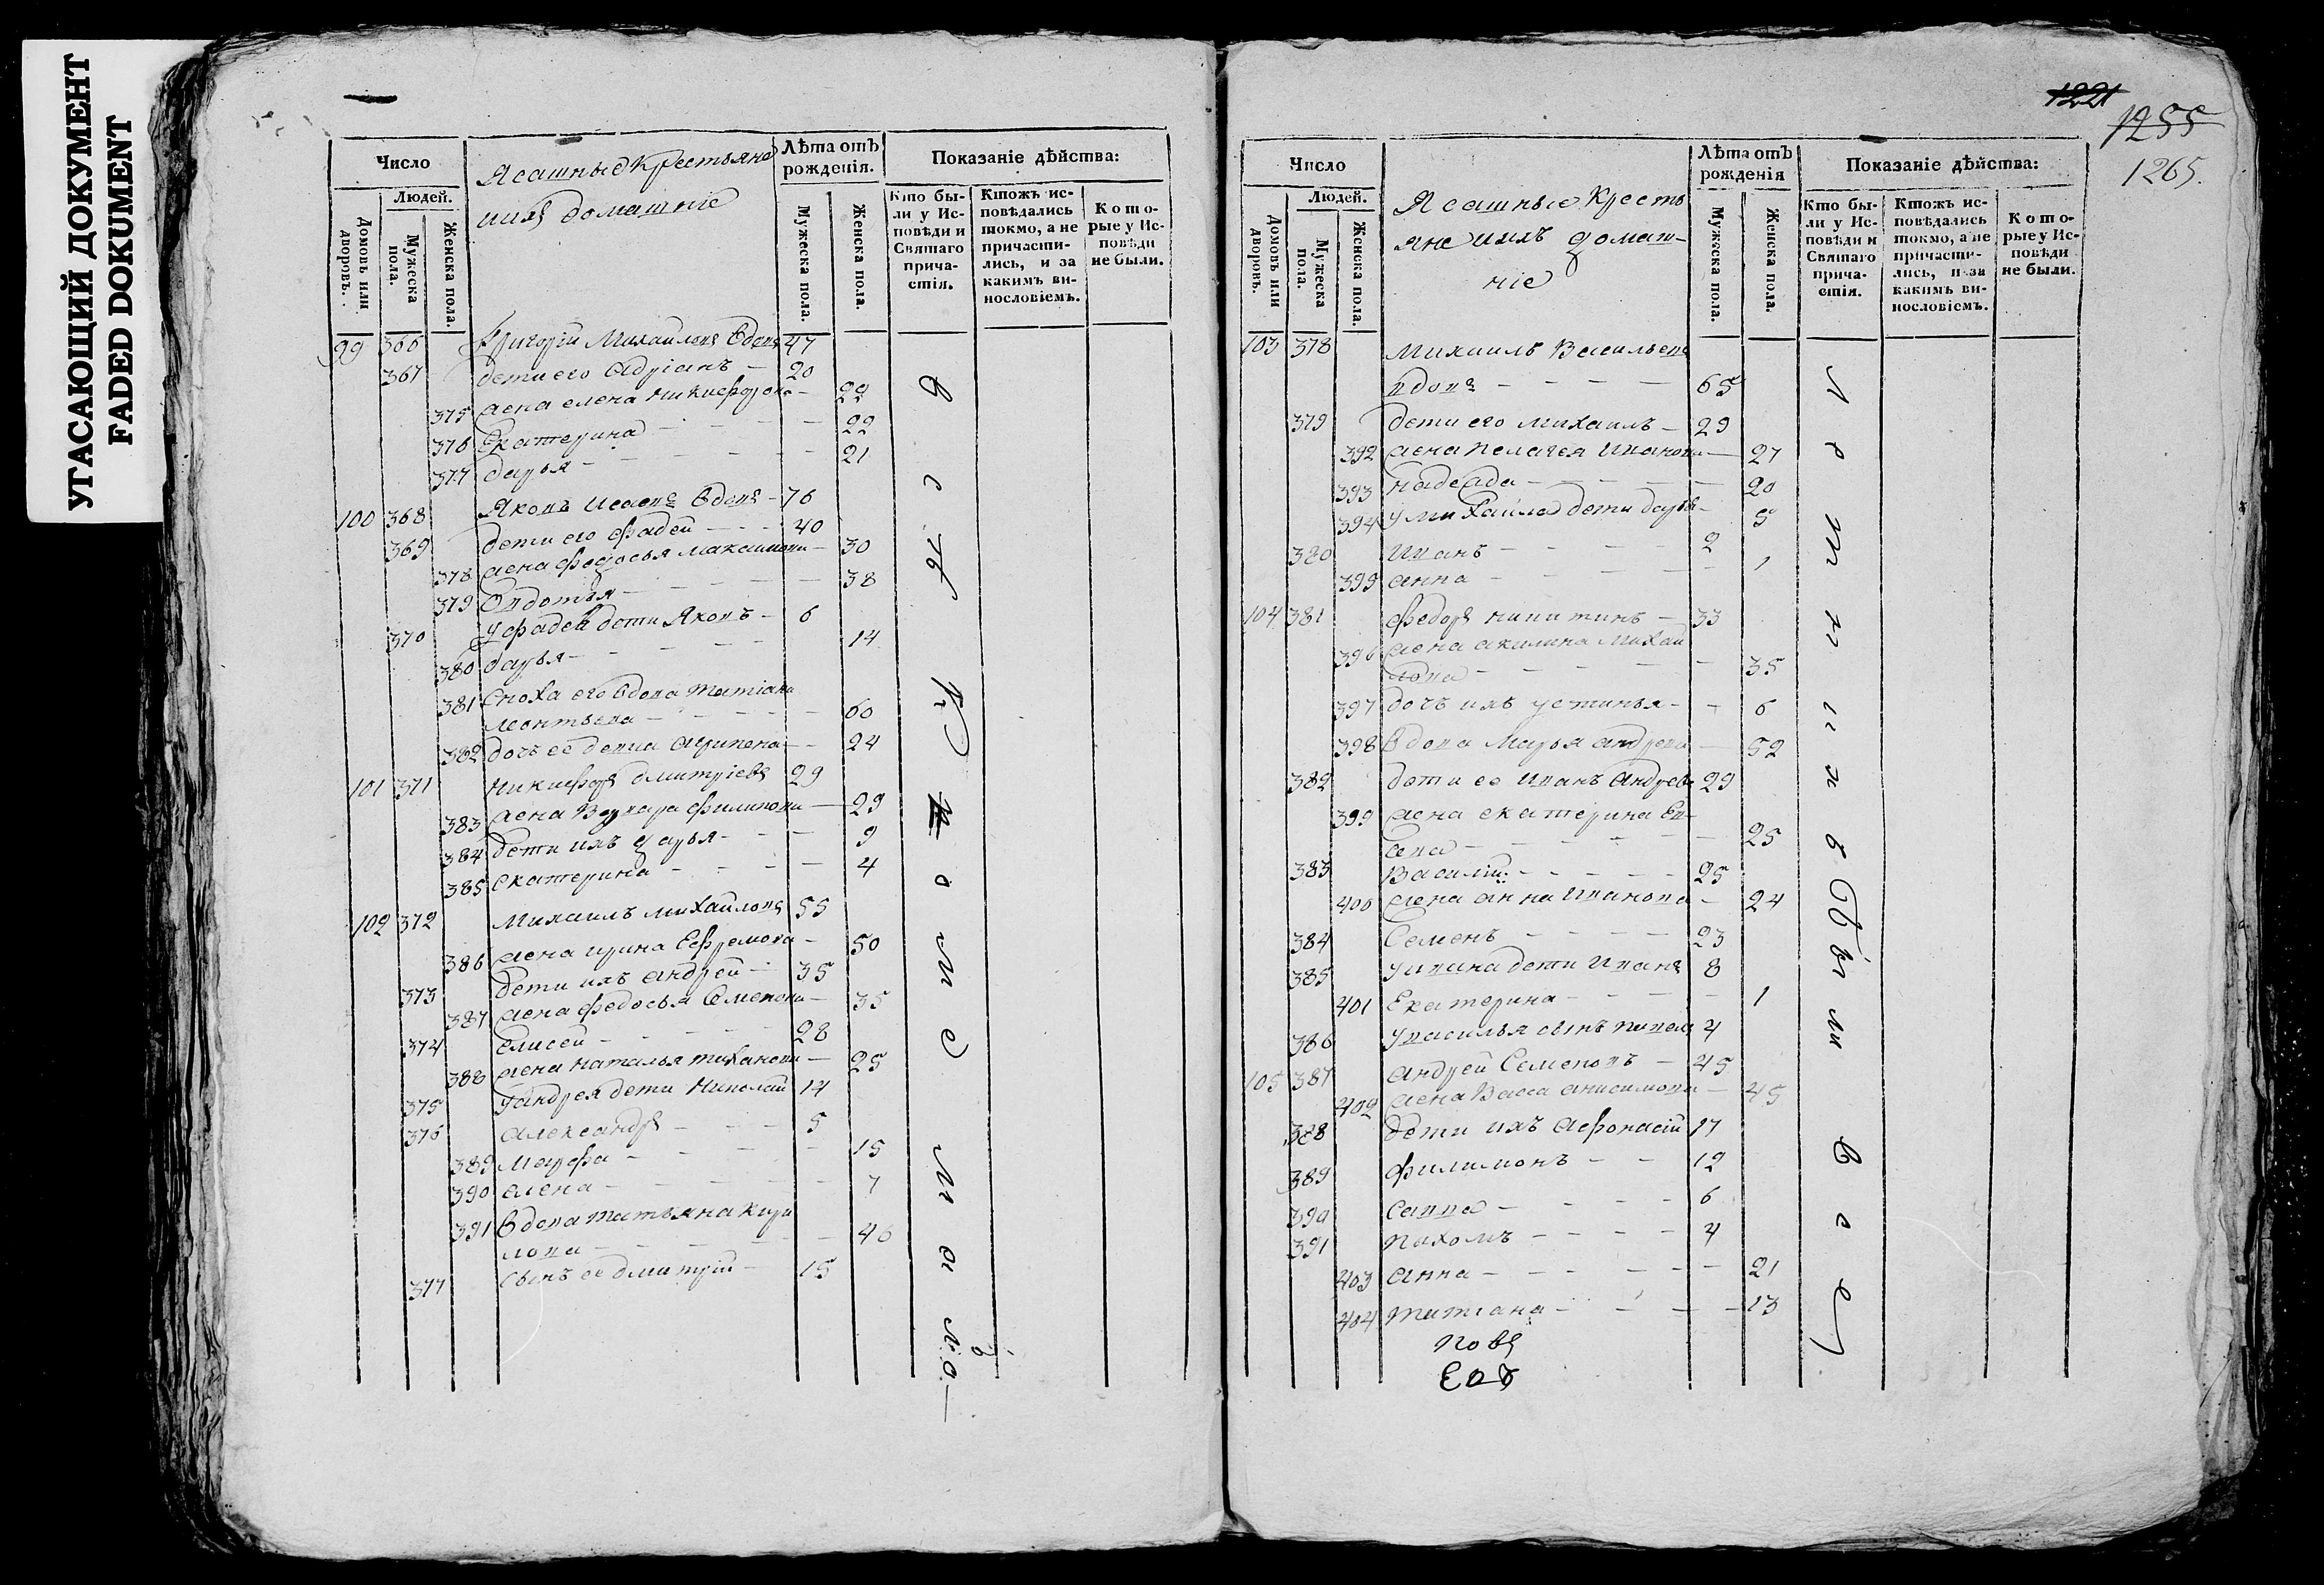 УГАСАЮЩИЙ ДОКУМЕНТ
FADED DOKUMENT
Число
Людей.
Домовъ или дворовъ.
Мужеска пола.
Женска пола.
Ясашные крестьяне
ихъ домашніе
Лѣта отъ рожденія.
Мужеска пола.
Женска пола.
Показаніе дѣйства:
Кто бы-
ли у Ис-
повѣди и
Святаго
прича-
стія.
Ктожъ ис-
повѣдались
токмо, а не
причасти-
лись, и за
какимъ ви-
нословіемъ.
Кото-
рые у Ис-
повѣди
не были.
99 366 Григорій Михайловъ вдовъ 47
367 дети его Адріанъ 20
375 жена елена Никиефорова 22
376 Екатерина 22
377 дарья 21
100 368 Яковъ Исаевъ вдовъ 76
369 дети его Фадей 40
378 жена Федосья Максимова 30
379 Овдотья 38
370 У фадея дети Яковъ 6
380 дарья 14
381 Сноха его вдова Татіана
леонтьева 60
382 дочь ее девка агрипена 24
101 371 Никифоръ дмитріевъ 29
383 жена Варвара филипова 29
384 дети ихъ дарья 9
385 екатерина 4
102 372 Михаилъ михайловъ 55
386 жена ирина Ефремова 50
373 дети ихъ андрей 35
387 жена федосья Семенова 35
374 елисей 28
388 жена наталья тиханова 25
375 У андрея дети Николай 14
376 александръ 5
389 марфа 15
390 елена 7
391 вдова татьяна кири
лова 46
377 сынъ ее дмитрій 15
1221
1255
1265.
Число
Людей.
Домовъ или дворовъ.
Мужеска пола.
Женска пола.
Ясашные Кресть
яне ихъ домаш-
ніе
Лѣта отъ рожденія
Мужеска пола.
Женска пола.
Показаніе дѣйства:
Кто бы-
ли у Ис-
повѣди и
Святаго
прича-
стія.
Ктожъ ис-
повѣдались
токмо, а не
причасти-
лись, и за
какимъ ви-
нословіемъ.
Кото-
рые у Ис-
повѣди
не были.
103 378 Михаилъ Васильевъ
вдовъ 65
379 дети его михаилъ 29
392 жена пелагея Иванова 27
393 надежда 20
394 У михайла дети дарья 5
380 Иванъ 2
395 анна 1
104 381 федоръ никитинъ 33
396 жена акилина михай
лова 35
397 дочь ихъ устинья 6
398 Вдова Марья андреева 52
382 дети ее Иванъ андреевъ 29
399 жена екатерина Ев-
сева 25
383 Василій 25
400 жена анна Иванова 24
384 Семенъ 23
385 У ивана дети Иванъ 8
401 Екатерина 1
386 У василья сынъ 4
105 387 андрей Семеновъ 45
402 жена Васса анисимова 45
388 дети ихъ Афонасій 17
389 филимонъ 12
390 Савва 6
391 пахомъ 4
403 анна 21
404 татіана 13